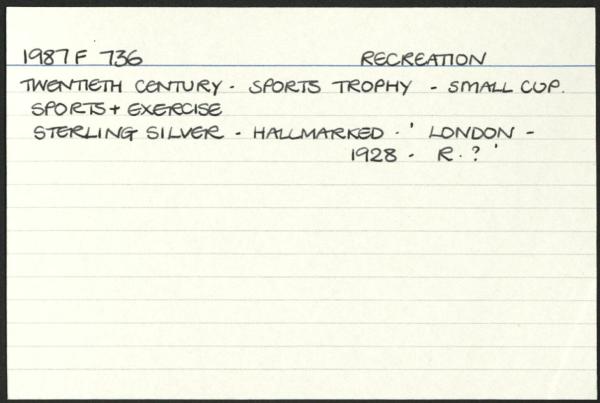 1987F 736 RECREATION
TWENTIETH CENTURY - SPORTS TROPHY - SMALL CUP.
SPORTS + EXERCISE
STERLING SILVER - HALLMARKED - ' LONDON -
1928 - R. ? '